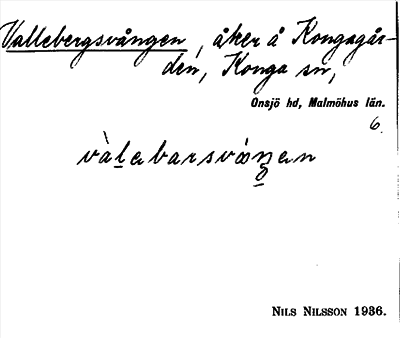 Vallebergsvången, åker å Kongagår-
den, Konga sn,
Onsjö hd, Malmöhus län.
6.
NILS NILSSON 1936.